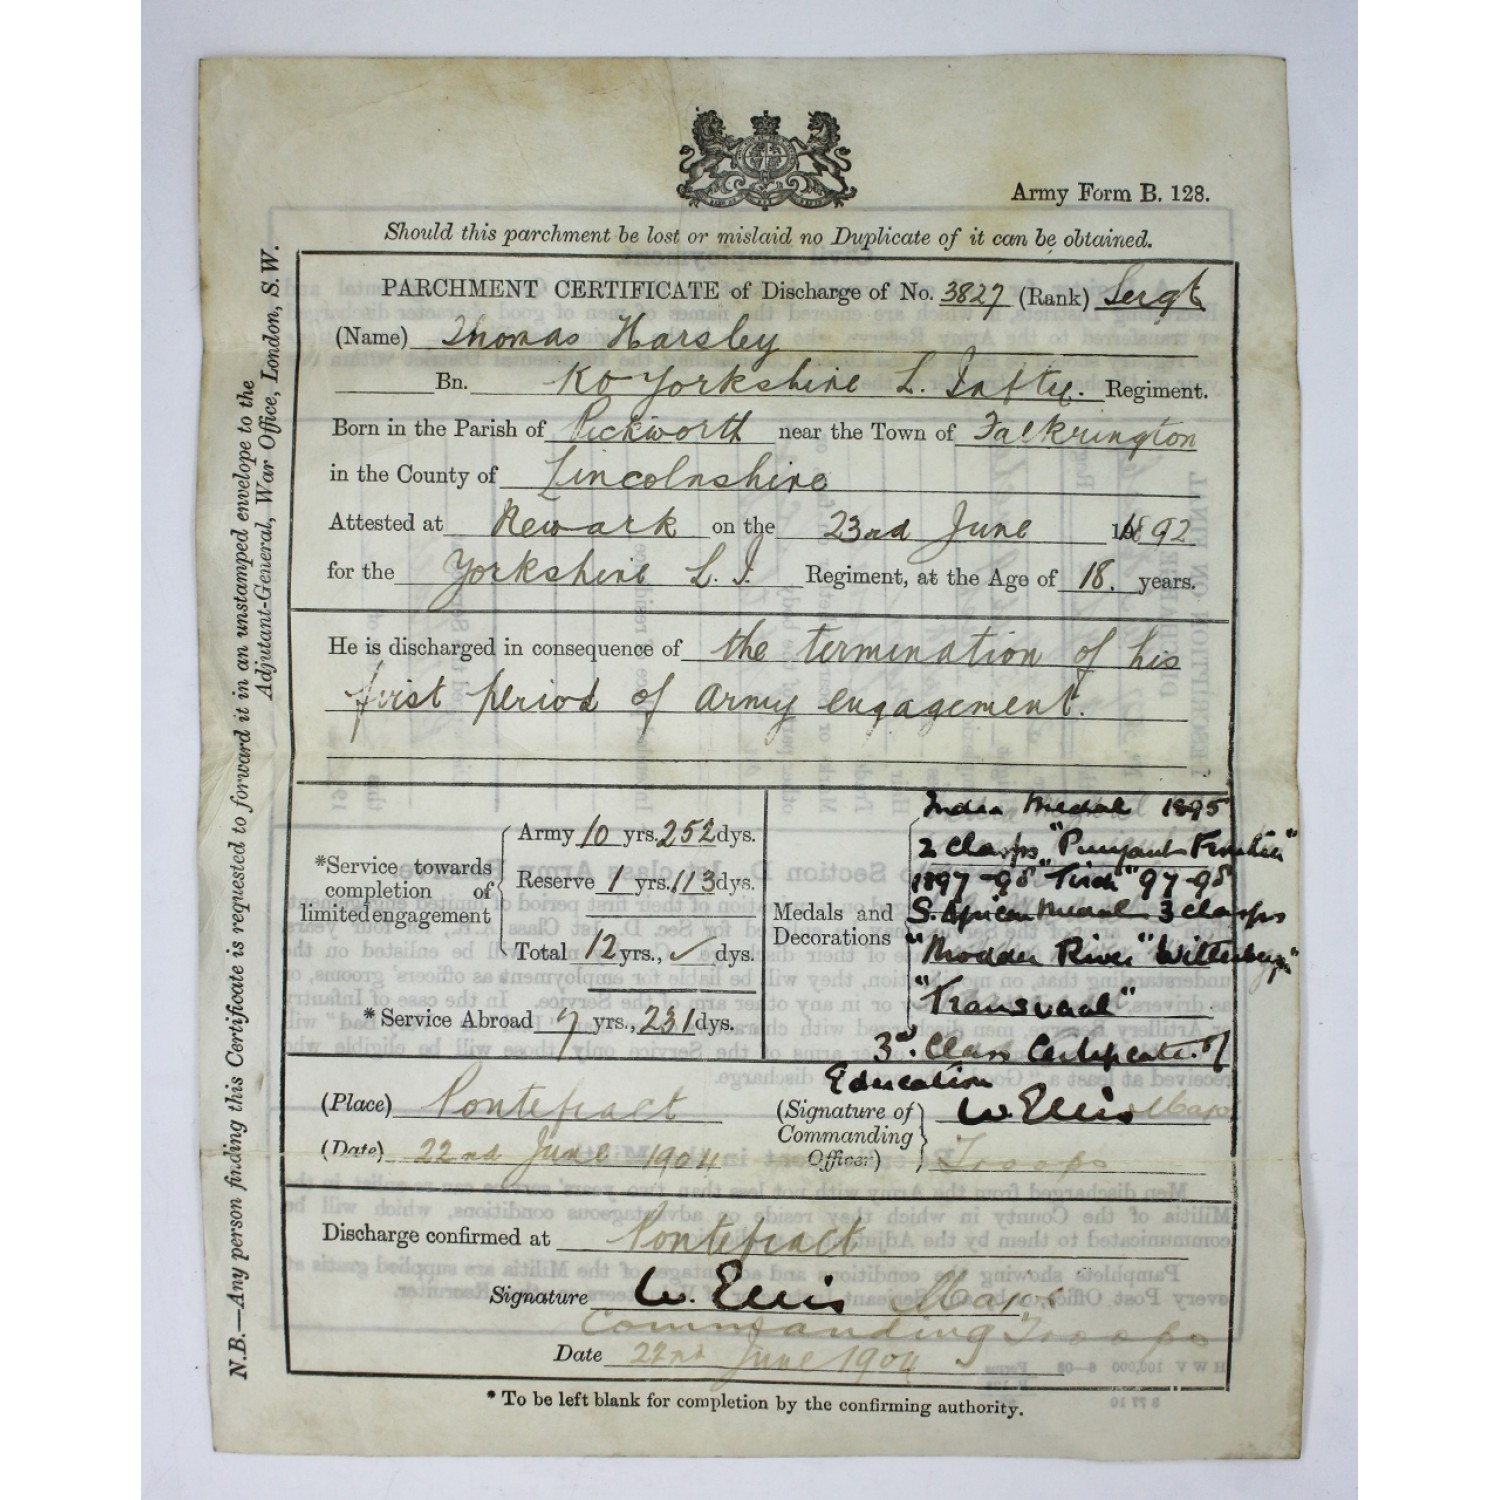 Army Form B. 128.
Should this parchment be lost or mislaid no Duplicate of it can be obtained.
PARCHMENT CERTIFICATE of Discharge of No. 3827 (Rank) Sergt
(Name) Thomas Harsley
Bn. KO Yorkshire L. Inftry. Regiment.
Born in the Parish of Pickworth near the Town of Falkrington
in the County of Lincolnshire
Attested at Newark on the 23rd June 1892
for the Yorkshire L. I. Regiment, at the Age of 18. years.
He is discharged in consequence of the termination of his
first period of Army engagement.
*Service towards completion of limited engagement
Army 10 yrs. 252 dys.
Reserve 1 yrs. 113 dys.
Total 12 yrs., ✓ dys.
* Service Abroad 7 yrs., 231 dys.
Medals and Decorations
India Medal 1895
2 Clasps "Punjaub Frontier"
1897-98 "Tirah" 97-98
S. African Medal 3 clasps
"Modder River" "Wittenberg"
"Transvaal"
3rd. Class Certificate of
Education
(Place) Pontefract
(Date) 22nd June 1904
(Signature of Commanding Officer) W. Ellis Major
Troops
Discharge confirmed at Pontefract
Signature W. Ellis Major
Commanding Troops
Date 22nd June 1904
* To be left blank for completion by the confirming authority.
N.B.—Any person finding this Certificate is requested to forward it in an unstamped envelope to the
Adjutant-General, War Office, London, S.W.